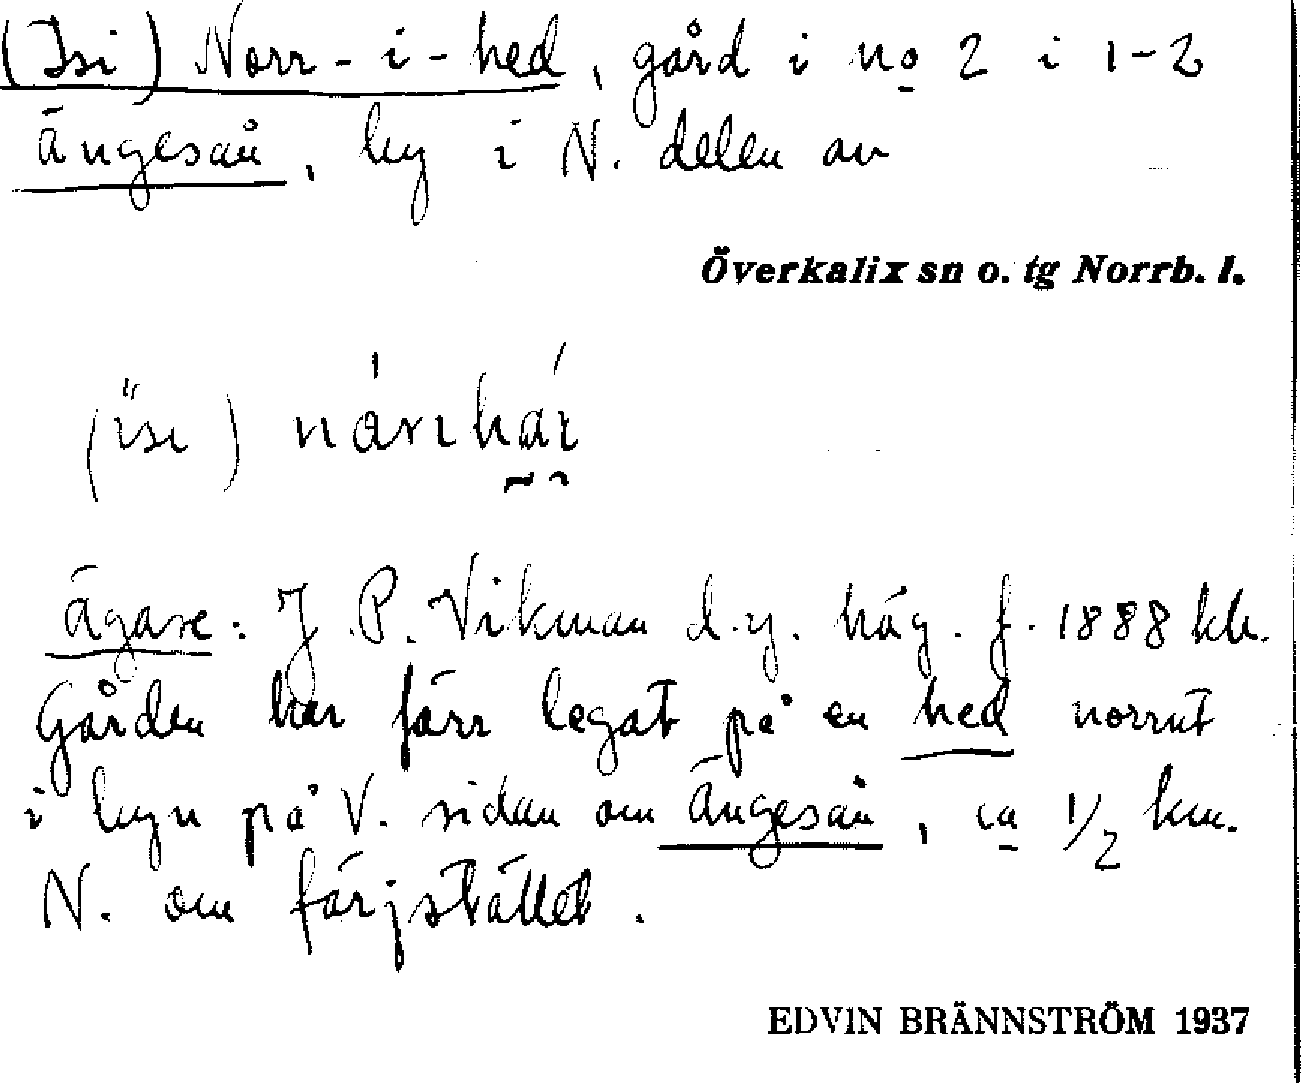 (Isi) Norr-i-hed, gård i no 2 i 1-2
Ängesån, by i N. delen av
Överkalix sn o. tg Norrb. l.
Ägare: J. P. Vikman d.y. häg. f. 1888 hh.
Gården har förr legat på en hed norrut
i byn på V. sidan om Ängesån, ca 1/2 km.
N. om färjstället.
EDVIN BRÄNNSTRÖM 1937